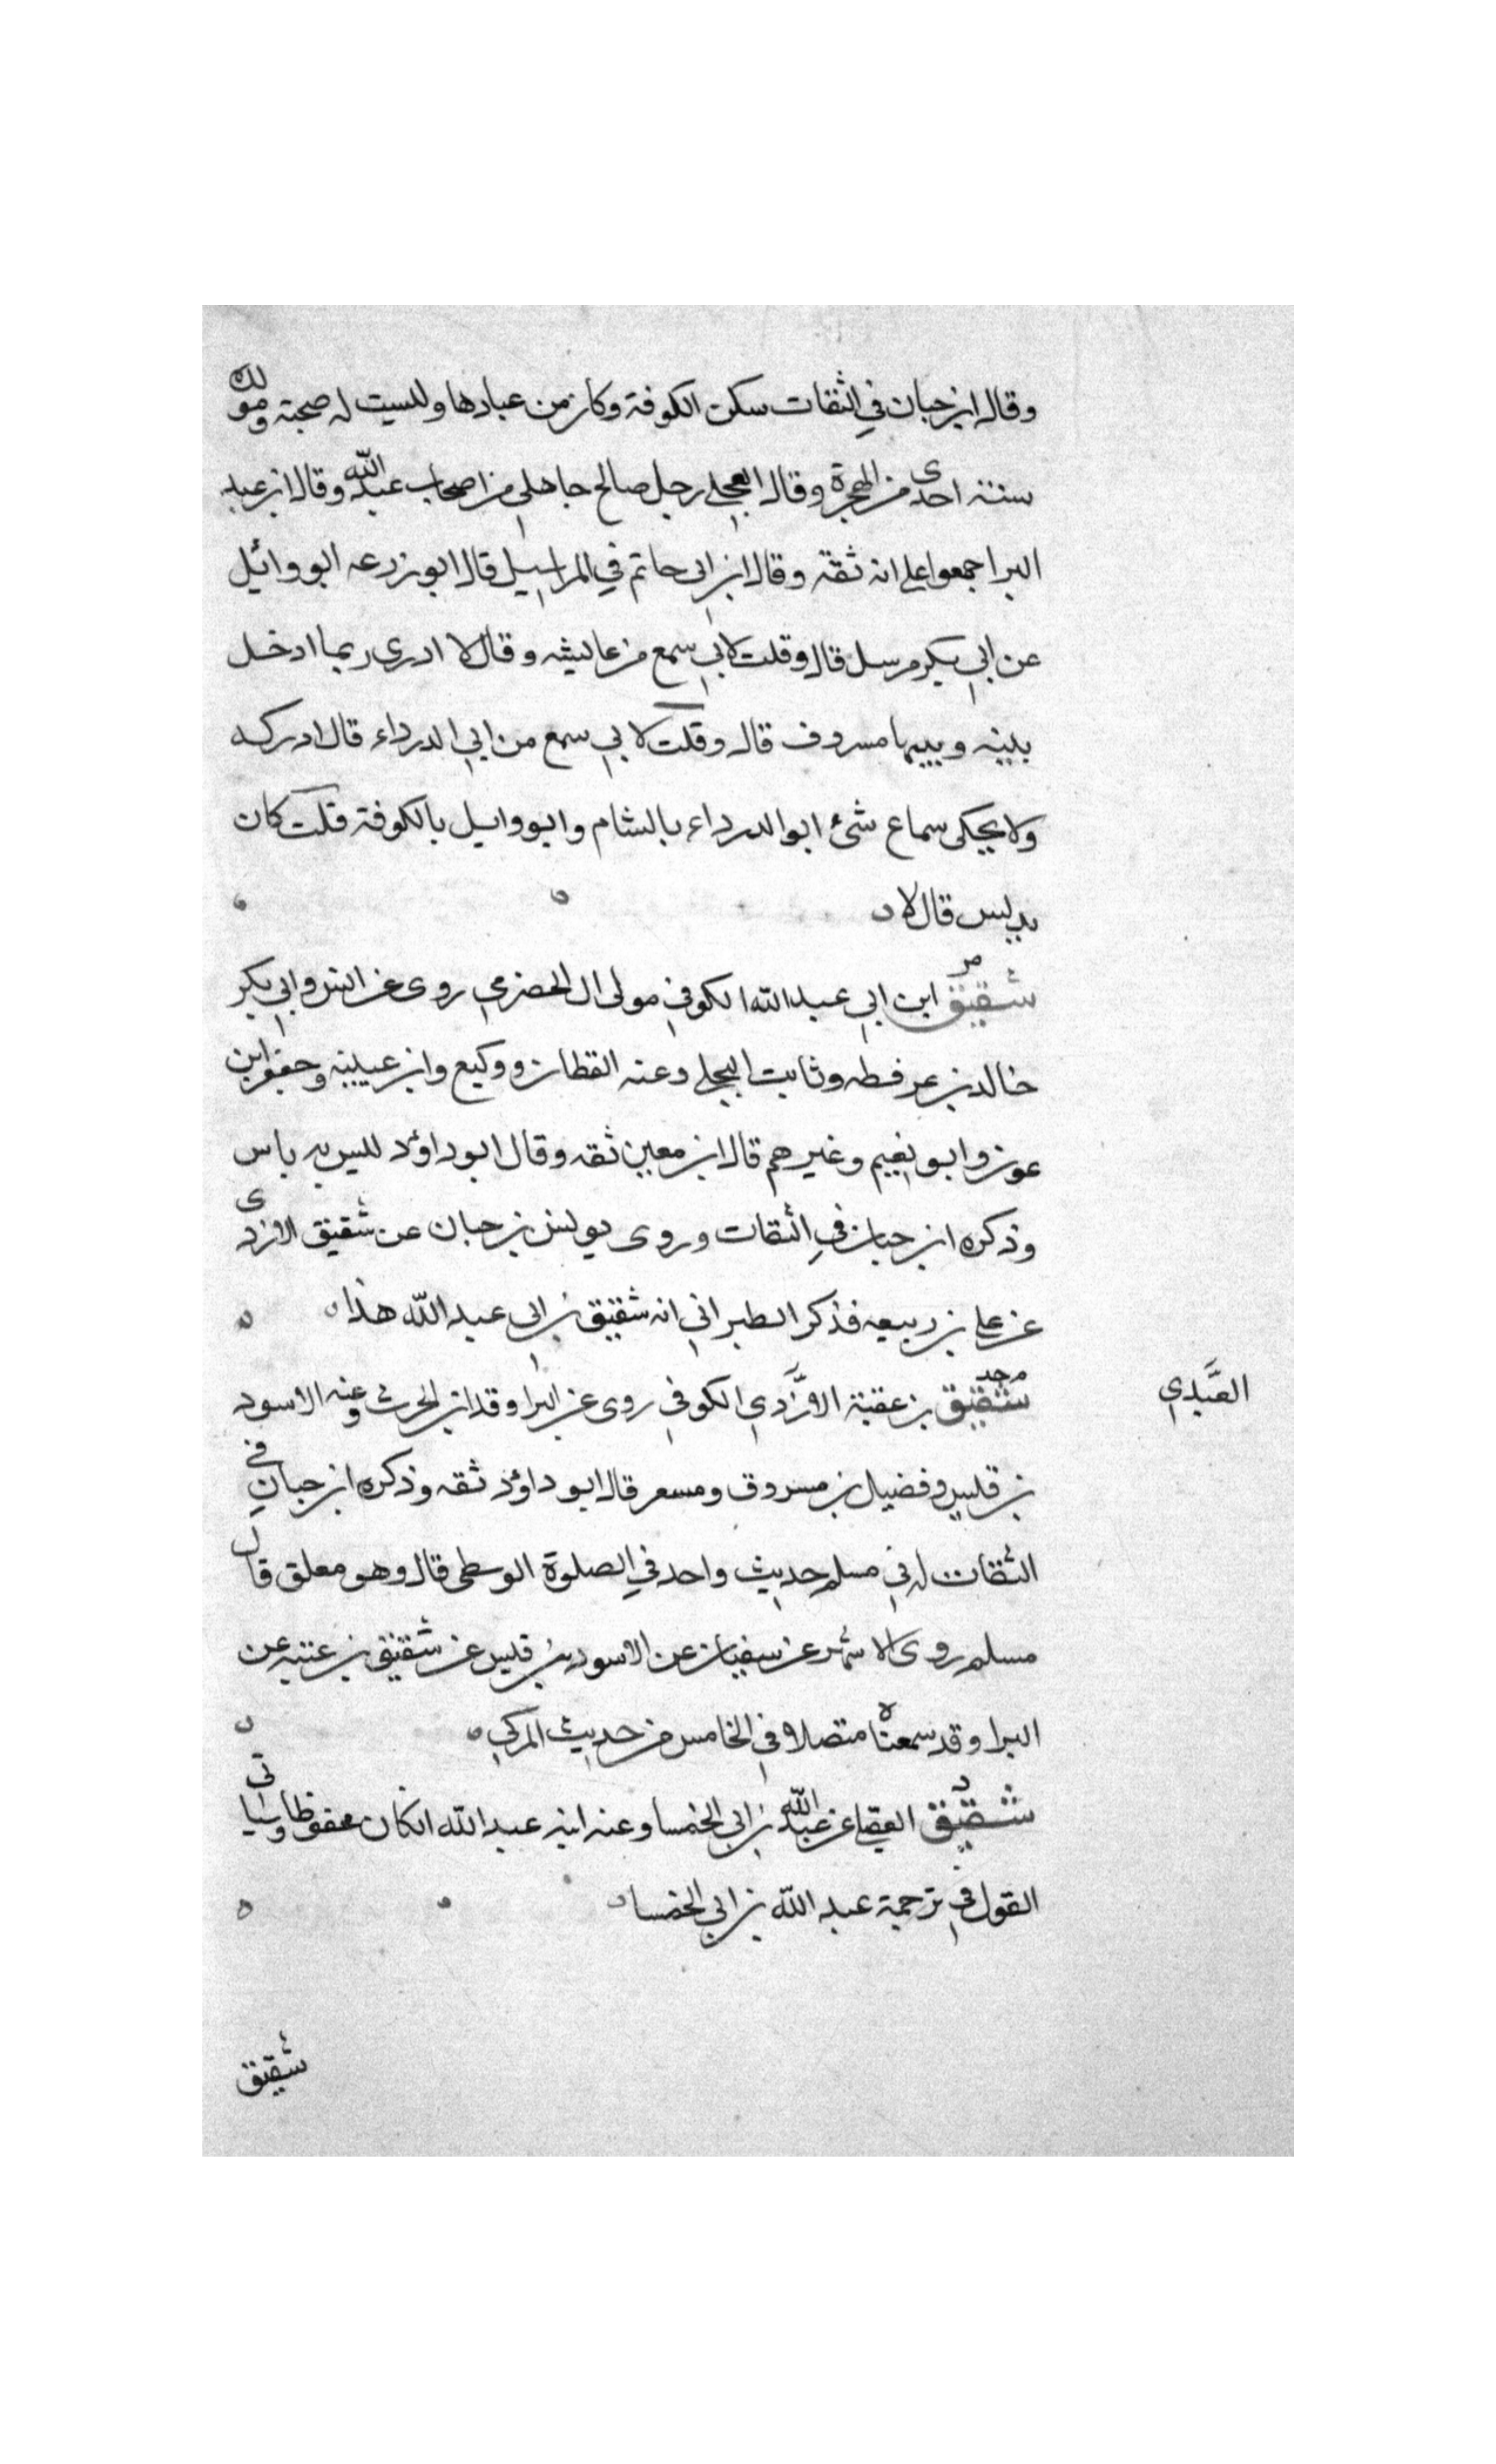 وقال ابن حبان في الثقات سكن الكوفة وكان من عبادها وليست له صحبة ومولده
سنة احدى من الهجرة وقال العجلي رجل صالح جاهلي من اصحاب عبد الله وقال ابن عبد
البر اجمعوا على انه ثقة وقال ابن ابي حاتم في المراسيل قال ابو زرعه ابو وائل
عن ابي بكر مرسل قال وقلت لابي سمع من عايشه وقال لا ادرى ربما ادخل
بينه وبينها مسروف قال وقلت لابي سمع من ابي الدرداء قال ادركه
ولا يحكى سماع شئ ابو الدرداء بالشام وابو وايل بالكوفة قلت كان
يدلس قال لا
مر
شقيق ابن ابي عبد الله الكوفي مولى ال الحضرمي روى عن انس وابي بكر
خالد بن عرفطه وثابت البجلي وعنه القطان ووكيع وابن عيينه وجعفر ابن
عون وابو نعيم وغيرهم قال ابن معين ثقه وقال ابو داؤد ليس به باس
وذكره ابن حبان في الثقات وروى يونس بن حبان عن شقيق الازدى
عن علي بن ربيعه فذكر الطبراني انه شقيق بن ابي عبد الله هذا
شقيق بن عقبة الازدي الكوفي روى عن البرا وقد ابن الحرث وعنه الاسود
العبدي
بن قيس وفضيل بن مسروق ومسعر قال ابو داؤد ثقه وذكره ابن حبان في
الثقات له في مسلم حديث واحد في الصلوة الوسطى قال وهو معلق قال
مسلم روى الاشجر عن سفيان عن الاسود بن قيس عن شقيق بن عتبه عن
البرا وقد سمعناه متصلا في الخامس من حديث المزكي
د
شقيق العقيلي عن عبد الله بن ابي الخمسا وعنه ابنه عبد الله ان كان محفوظا وسياتى
القول في ترجمة عبد الله بن ابي الخمسا
شقيق